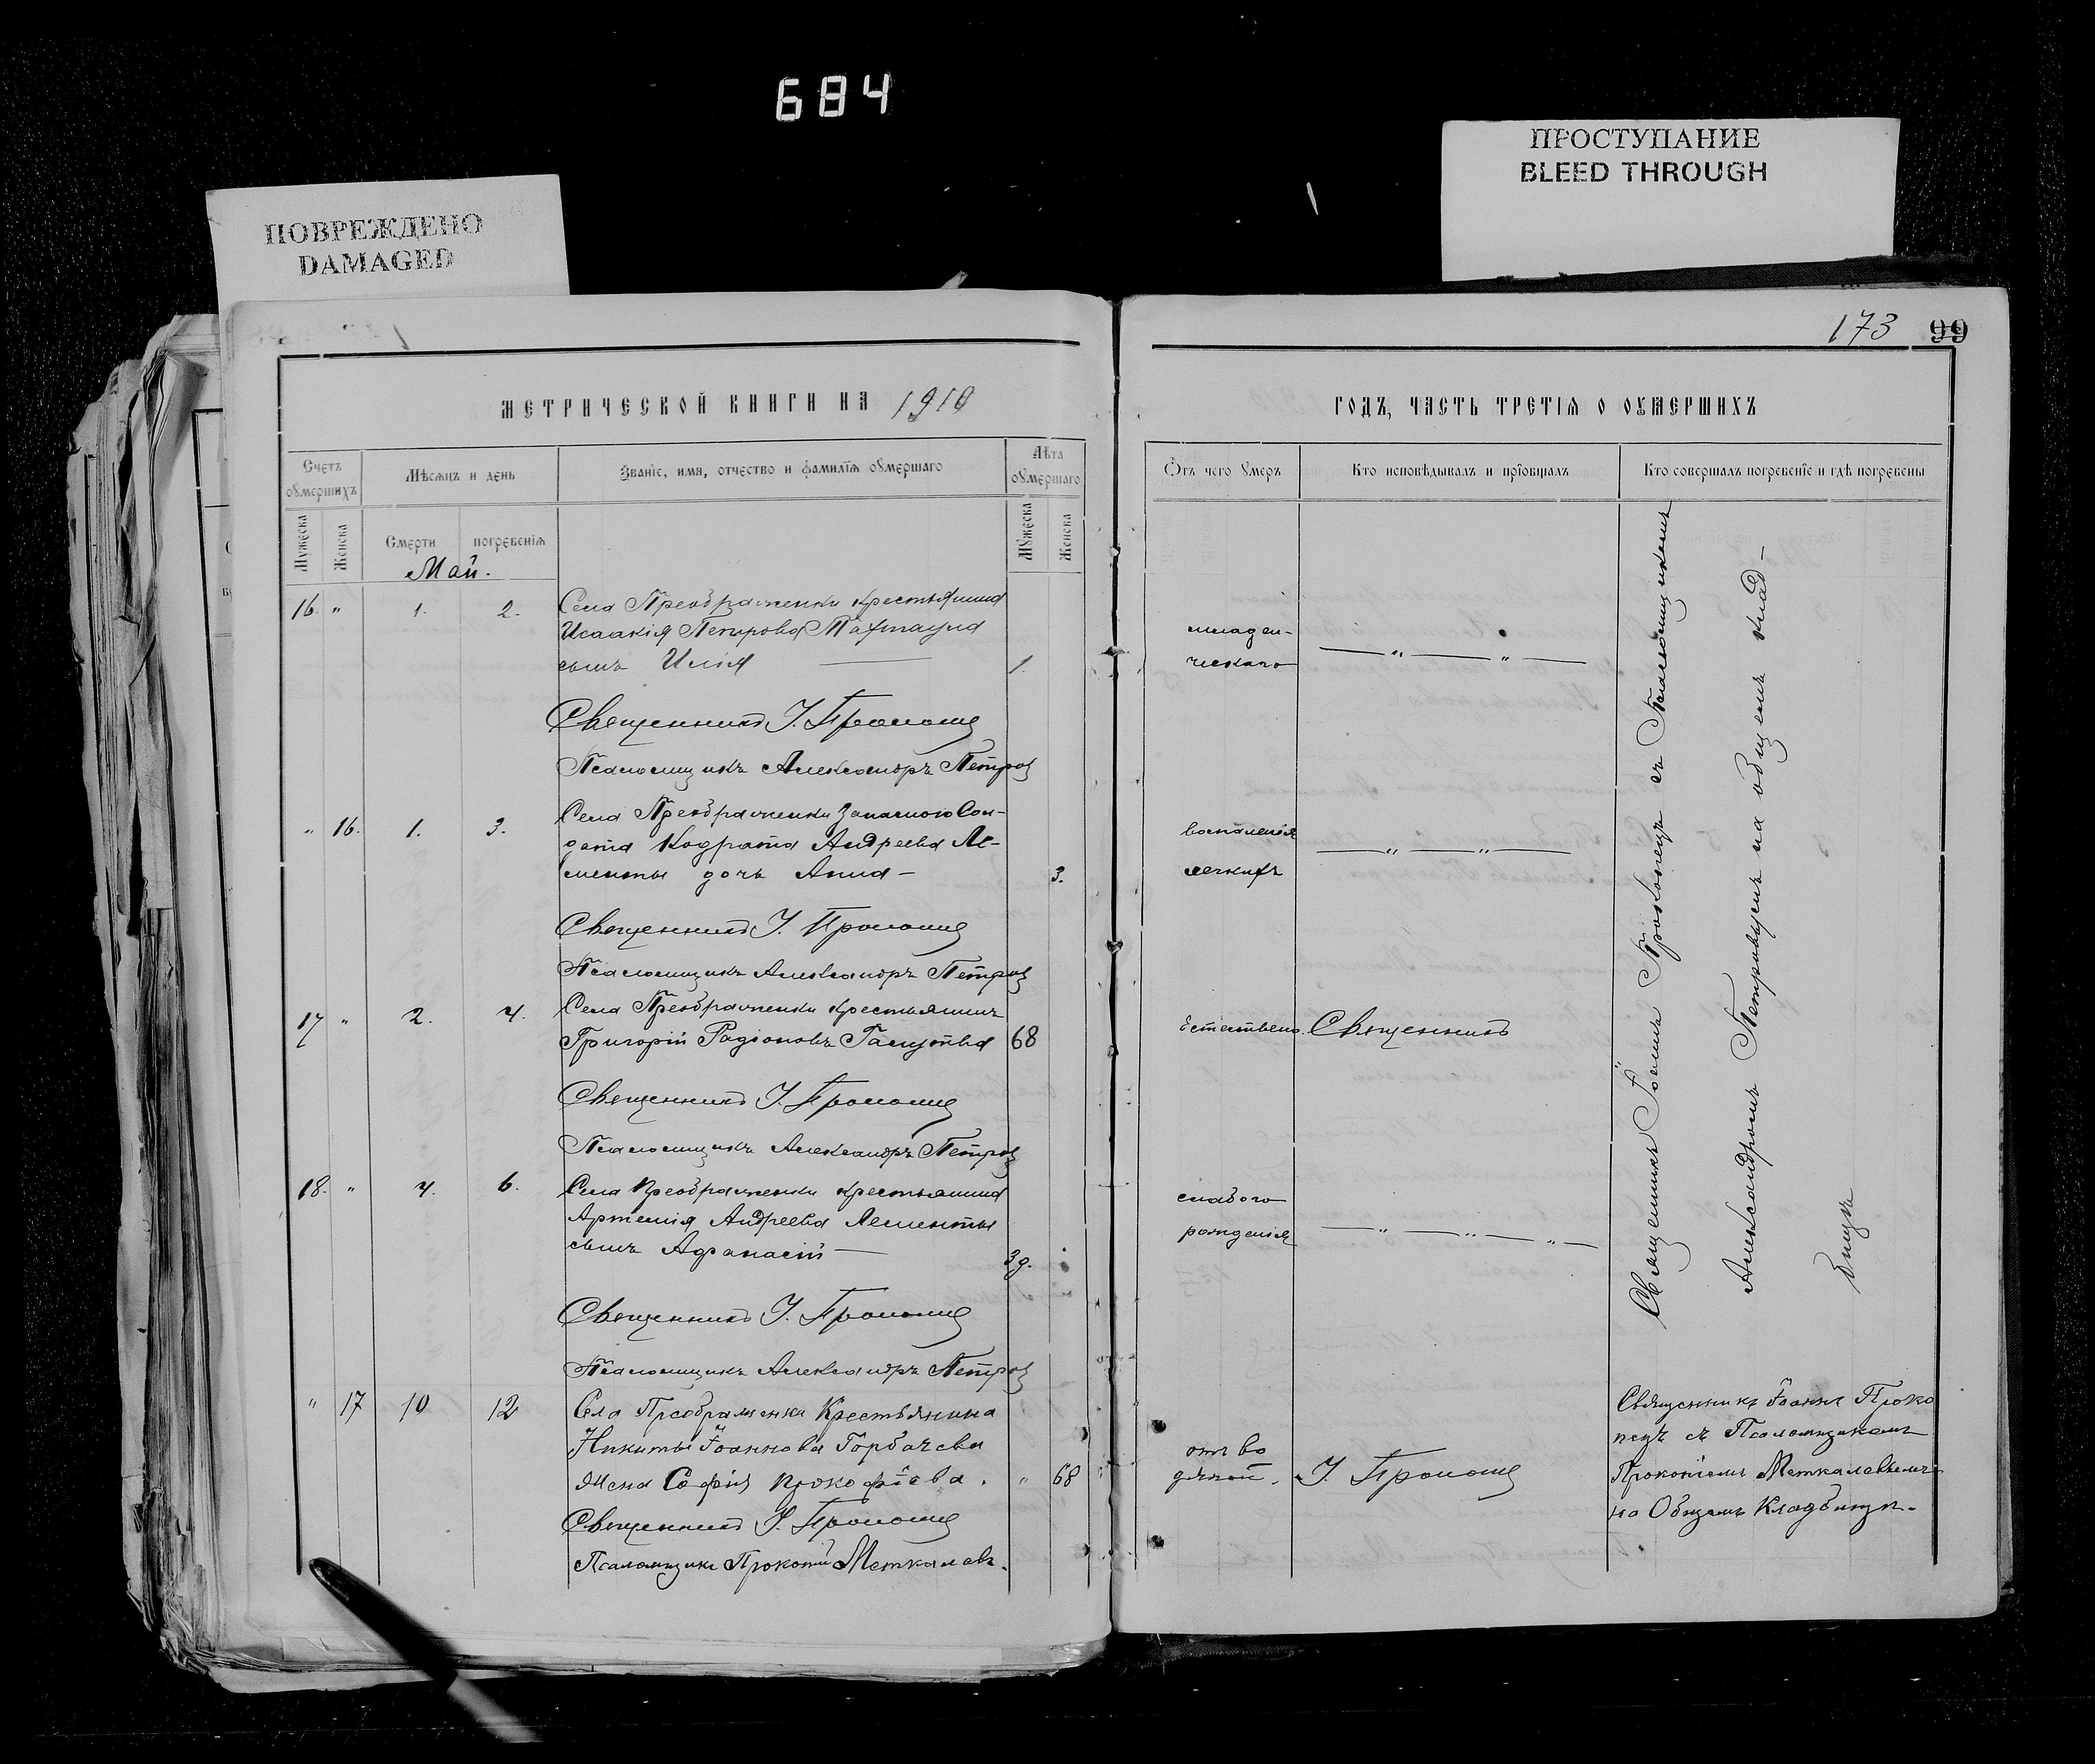 684
ПРОСТУПАНИЕ
BLEED THROUGH
ПОВРЕЖДЕНО
DAMAGED
173 99
МЕТРИЧЕСКОЙ КНИГИ НА 1910
Счетъ умершихъ
Мѣсяцъ и день
Званіе, имя, отчество и фамилія умершаго
Лѣта умершаго
Мужеска
Женска
Смерти
погребенія
Мужеска
Женска
Май.
16. " 1. 2. Села Преображенки крестьянина
Исаакія Петрова
сынъ Илія 1.
Священникъ І.
Псаломщикъ Александръ Петров
" 16. 1. 3. Села Преображенки Запасного Сол-
дата Кодрата Андреева Ле-
менты дочь Анна - 3.
Священникъ І.
Псаломщикъ Александръ Петров
17 " 2. 4. Села Преображенки крестьянинъ
Григорій Радіоновъ 68
Священникъ І.
Псаломщикъ Александръ Петров
18. " 4. 6. Села Преображенки крестьянина
Артемія Андреева Лементы
сынъ Афанасій 3д.
Священникъ І.
Псаломщикъ Александръ Петров
" 17 10 12 Села Преображенки Крестьянина
Никиты Іоаннова Горбачева
жена Софія Прокофіева. " 68
Священникъ І.
Псаломщикъ Прокопій Меткалевъ.
ГОДЪ, ЧАСТЬ ТРЕТІЯ О УМЕРШИХЪ
Отъ чего умеръ
Кто исповѣдывалъ и пріобщалъ
Кто совершалъ погребеніе и гдѣ погребены
младен-
ческаго
воспаленія
легкихъ
естествено. Священникъ
слабого
рожденія
отъ во
дяной. І.
Священникъ Іоаннъ Прокопецъ съ Псаломщикомъ
Александромъ на общемъ клад-
бищѣ
Священникъ Іоаннъ Проко
пецъ съ Псаломщикомъ
Прокопіемъ Меткалевымъ
на Общемъ Кладбищѣ.